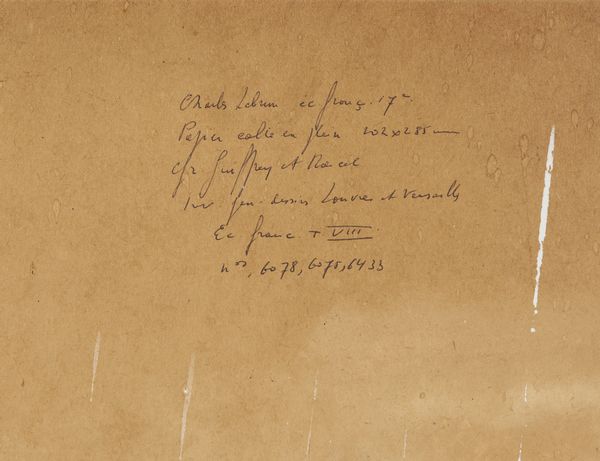 Charles Lebrun éc franç. 17e
Papier collé en plein 202x288mm
Cfr Guiffrey et Marcel
Inv. gen. dessins Louvre et Versailles
Ec franc T VIII
nos, 6078, 6075, 6433